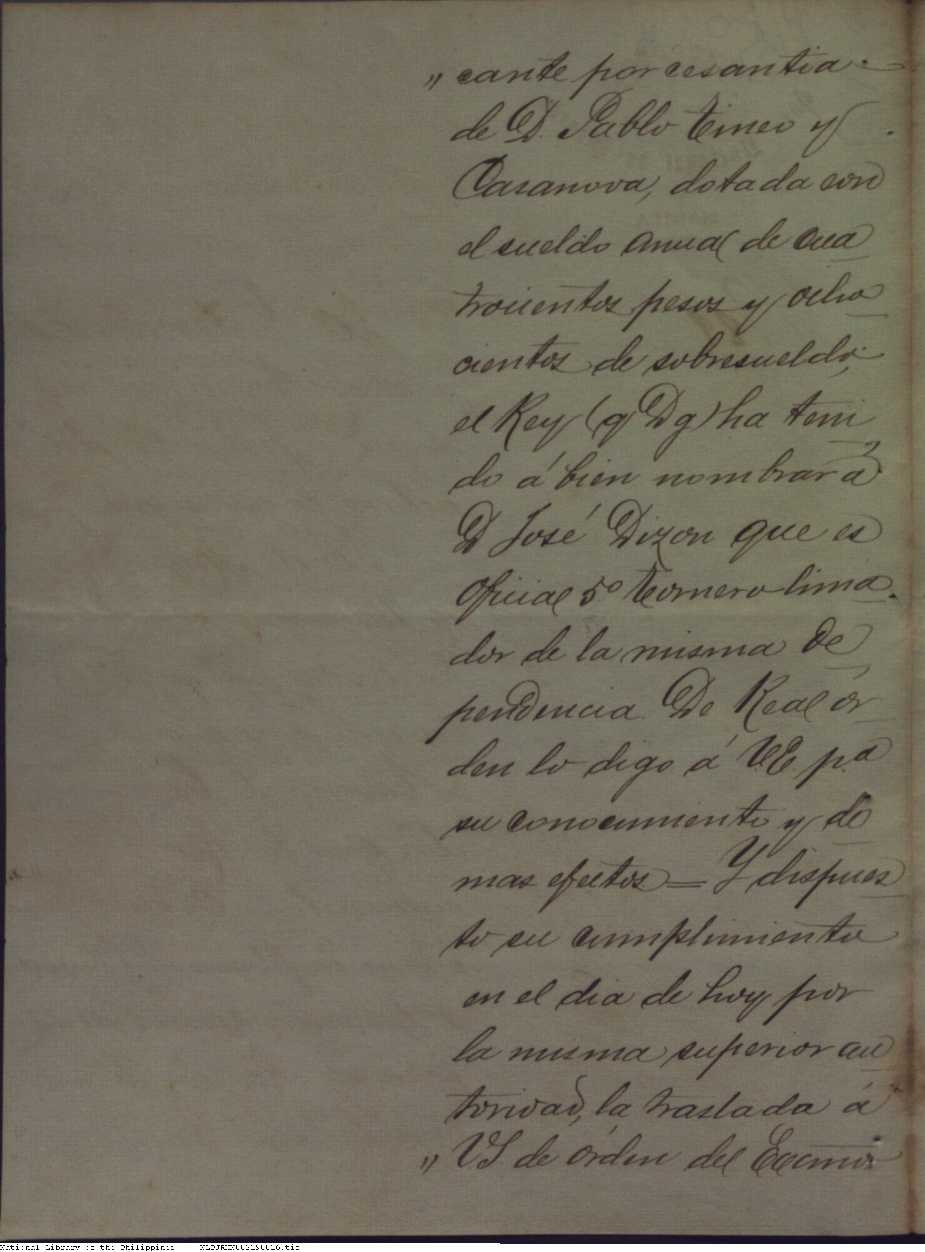 „ cante por cesantia
de D. Pablo Tineo y
Casanova, dotada con
el sueldo anual de cua
trocientos pesos y ocho
cientos de sobresueldo;
el Rey (q D g) ha teni
do á bien nombrar á
D José Dizon que es
Oficial 5º tornero lima
dor de la misma de
pendencia. De Real ór
den lo digo á V.E. pª
su conocimiento y de
mas efectos = Y dispues
to su cumplimiento
en el dia de hoy por
la misma superior au
toridad, la traslada á
„ VS de órden del Excmo
National Library of the Philippines